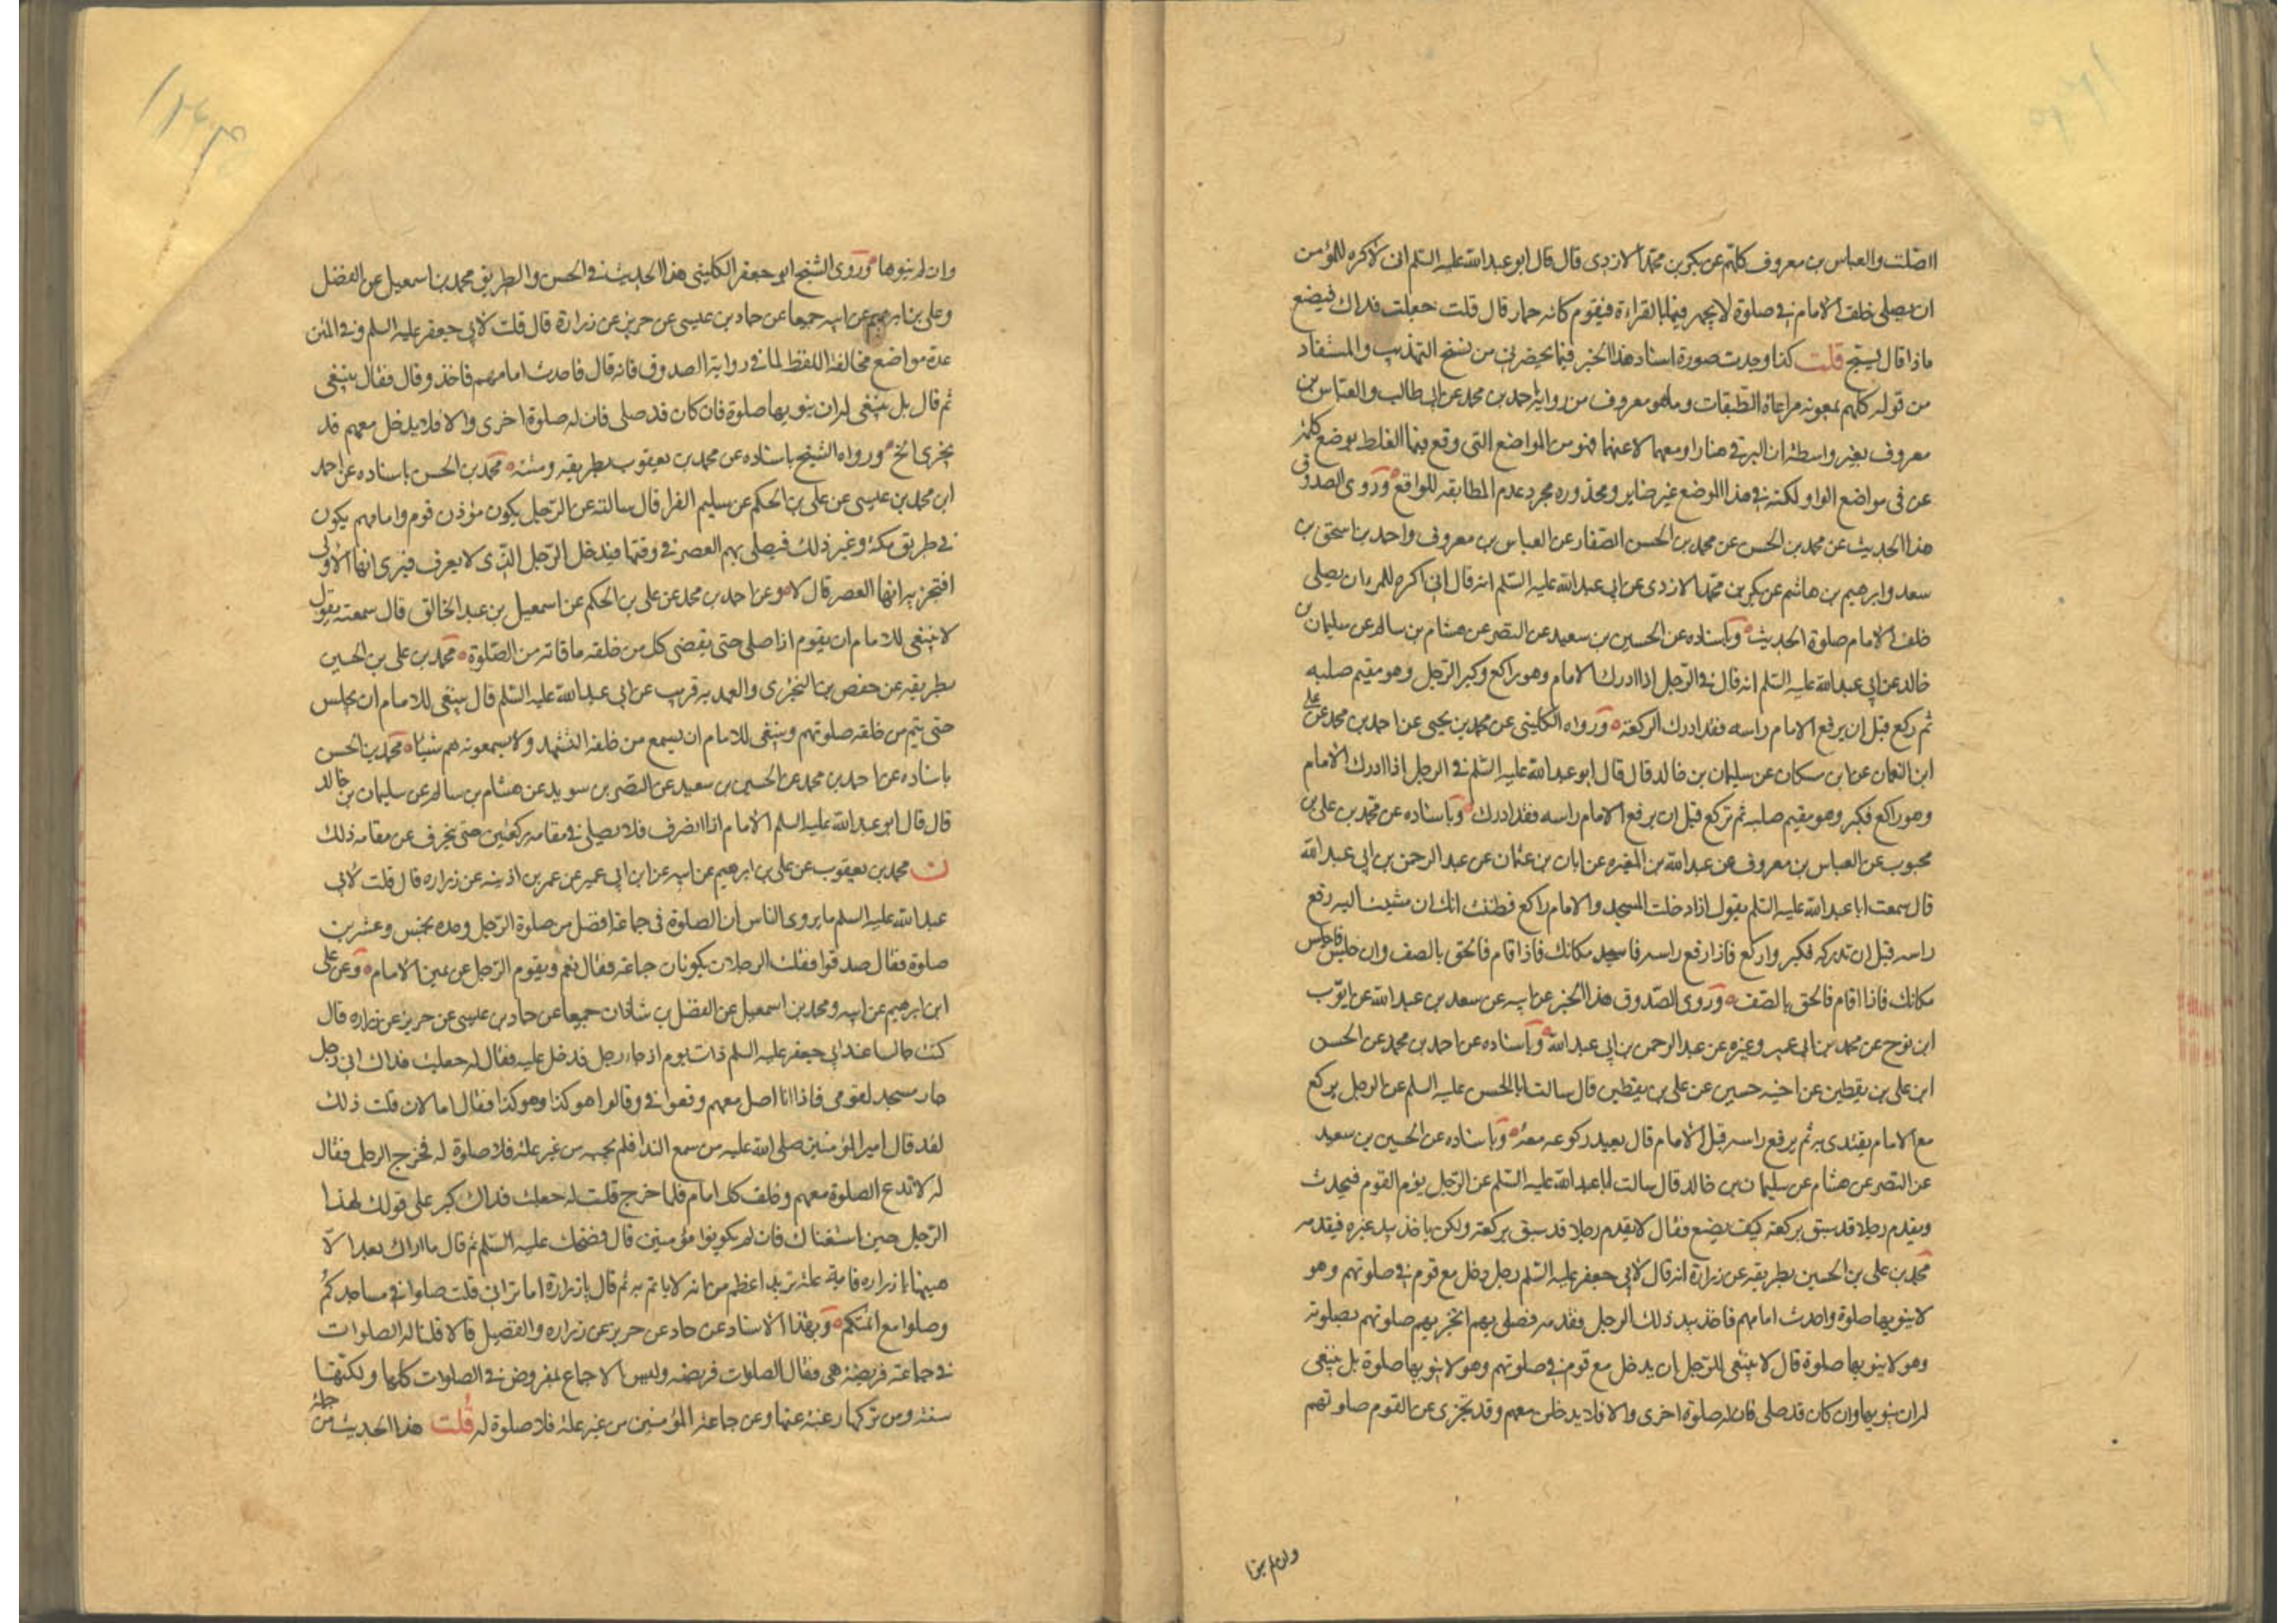 الصلت والعباس بن معروف كلهم عن بكر بن محمد الازدى قال قال ابو عبد الله عليه السلم انى لاكره للمؤمن
ان يصلى خلف الامام فى صلوة لا يجهر فيها بالقراءة فيقوم كانه حمار قال قلت جعلت فداك فيضع
ماذا قال يسبح قلت كذا وجدت صورة اسناد هذا الخبر فيما يحضرنى من نسخ التهذيب والمستفاد
من قوله كلهم بمعونه مراعاة الطبقات وما هو معروف من رواية احمد بن محمد عن ابى طالب والعباس بن
معروف بغير واسطة ان البرقى هنا راو معهما لا عنهما فهو من المواضع التى وقع فيها الغلط بوضع كلمة
عن فى مواضع الواو لكنه فى هذا الموضع غير ضاير ومحذوره مجرد عدم المطابقه للواقع وروى الصدوق
هذا الحديث عن محمد بن الحسن عن محمد بن الحسن الصفار عن العباس بن معروف واحمد بن اسحق بن
سعد وابرهيم بن هاشم عن بكر بن محمد الازدى عن ابى عبد الله عليه السلم انه قال انى اكره للمرء ان يصلى
خلف الامام صلوة الحديث وباسناده عن الحسين بن سعيد عن النضر عن هشام بن سالم عن سليمان بن
خالد عن ابى عبد الله عليه السلم انه قال فى الرجل اذا ادرك الامام وهو راكع وكبر الرجل وهو مقيم صلبه
ثم ركع قبل ان يرفع الامام راسه فقد ادرك الركعة ورواه الكلينى عن محمد بن يحيى عن احمد بن محمد عن على
ابن النعمان عن ابن مسكان عن سليمان بن خالد قال قال ابو عبد الله عليه السلم فى الرجل اذا ادرك الامام
وهو راكع فكبر وهو مقيم صلبه ثم ركع قبل ان يرفع الامام راسه فقد ادرك وباسناده عن محمد بن على بن
محبوب عن العباس بن معروف عن عبد الله بن المغيره عن ابان بن عثمان عن عبد الرحمن بن ابى عبد الله
قال سمعت ابا عبد الله عليه السلم يقول اذا دخلت المسجد والامام راكع فظننت انك ان مشيت اليه رفع
راسه قبل ان تدركه فكبر واركع فاذا رفع راسه فاسجد مكانك فاذا قام فالحق بالصف وان جلس فاجلس
مكانك فاذا قام فالحق بالصف وروى الصدوق هذا الخبر عن ابيه عن سعد بن عبد الله عن ايوب
ابن نوح عن محمد بن ابى عمير وغيره عن عبد الرحمن بن ابى عبد الله وباسناده عن احمد بن محمد عن الحسن
ابن على بن يقطين عن اخيه حسين عن على بن يقطين قال سالت ابا الحسن عليه السلم عن الرجل يركع
مع الامام يقتدى به ثم يرفع راسه قبل الامام قال يعيد ركوعه معه وباسناده عن الحسين بن سعيد
عن النضر عن هشام عن سليمان بن خالد قال سالت ابا عبد الله عليه السلم عن الرجل يؤم القوم فيحدث
ويقدم رجلا قد سبق بركعة كيف يصنع فقال لا يقدم رجلا قد سبق بركعة ولكن ياخذ بيد غيره فيقدمه
محمد بن على بن الحسين بطريقه عن زرارة انه قال لابى جعفر عليه السلم رجل دخل مع قوم فى صلوتهم وهو
لا ينويها صلوة واحدث امامهم فاخذ بيد ذلك الرجل فقدمه فصلى بهم اتجزيهم صلوتهم بصلوته
وهو لا ينويها صلوة قال لا ينبغى للرجل ان يدخل مع قوم فى صلوتهم وهو لا ينويها صلوة بل ينبغى
له ان ينويها وان كان قد صلى فان له صلوة اخرى والا فلا يدخلن معهم وقد تجزى عن القوم صلوتهم
وان لم ينوها
وان لم ينوها وروى الشيخ ابو جعفر الكلينى هذا الحديث فى الحسن والطريق محمد بن اسمعيل عن الفضل
وعلى بن ابرهيم عن ابيه جميعا عن حماد بن عيسى عن حريز عن زرارة قال قلت لابى جعفر عليه السلم وفى المتن
عدة مواضع مخالفة اللفظ لما فى رواية الصدوق فانه قال فاحدث امامهم فاخذ وقال فقال ينبغى
ثم قال بل ينبغى له ان ينويها صلوة فان كان قد صلى فان له صلوة اخرى والا فلا يدخل معهم قد
يجزى الخ ورواه الشيخ باسناده عن محمد بن يعقوب بطريقيه ومتنه محمد بن الحسن باسناده عن احمد
ابن محمد بن عيسى عن على بن الحكم عن سليم الفرا قال سالته عن الرجل يكون مؤذن قوم وامامهم يكون
فى طريق مكة وغير ذلك فيصلى بهم العصر فى وقتها فيدخل الرجل الذى لا يعرف فيرى انها الاولى
افتجزيه انها العصر قال لا وعن احمد بن محمد عن على بن الحكم عن اسمعيل بن عبد الخالق قال سمعته يقول
لا ينبغى للامام ان يقوم اذا صلى حتى يقضى كل من خلفه ما فاته من الصلوة محمد بن على بن الحسين
بطريقه عن حفص بن البخترى والعهد به قريب عن ابى عبد الله عليه السلم قال ينبغى للامام ان يجلس
حتى يتم من خلفه صلوتهم وينبغى للامام ان يسمع من خلفه التشهد ولا يسمعونه هم شيئا محمد بن الحسن
باسناده عن احمد بن محمد عن الحسين بن سعيد عن النضر بن سويد عن هشام بن سالم عن سليمان بن خالد
قال قال ابو عبد الله عليه السلم الامام اذا انصرف فلا يصلى فى مقامه ركعتين حتى ينحرف عن مقامه ذلك
ن محمد بن يعقوب عن على بن ابرهيم عن ابيه عن ابن ابى عمير عن عمر بن اذينه عن زراره قال قلت لابى
عبد الله عليه السلم ما يروى الناس ان الصلوة فى جماعة افضل من صلوة الرجل وحده بخمس وعشرين
صلوة فقال صدقوا فقلت الرجلان يكونان جماعة فقال نعم ويقوم الرجل عن يمين الامام وعن على
ابن ابرهيم عن ابيه ومحمد بن اسمعيل عن الفضل بن شاذان جميعا عن حماد بن عيسى عن حريز عن زراره قال
كنت جالسا عند ابى جعفر عليه السلم ذات يوم اذ جاءه رجل فدخل عليه فقال له جعلت فداك انى رجل
جار مسجد لقومى فاذا انا اصل معهم وقعوا فى وقالوا هو كذا وهو كذا فقال اما لان قلت ذلك
لقد قال امير المؤمنين صلى الله عليه من سمع الندا فلم يجبه من غير علة فلا صلوة له فخرج الرجل فقال
له لا تدع الصلوة معهم وخلف كل امام فلما خرج قلت له جعلت فداك كبر على قولك لهذا
الرجل حين استفتاك فان لم يكونوا مؤمنين قال فضحك عليه السلم ثم قال ما اراك بعد الا
هيهنا يا زراره فاية علة تريد اعظم من انه لا ياتم به ثم قال يا زرارة اما ترانى قلت صلوا فى مساجدكم
وصلوا مع ائمتكم وبهذا الاسناد عن حماد عن حريز عن زراره والفضيل قالا قلنا له الصلوات
فى جماعة فريضة هى فقال الصلوات فريضه وليس الاجماع بمفروض فى الصلوات كلها ولكنها
سنة ومن تركها رغبة عنها وعن جماعة المؤمنين من غير علة فلا صلوة له قلت هذا الحديث من جملة